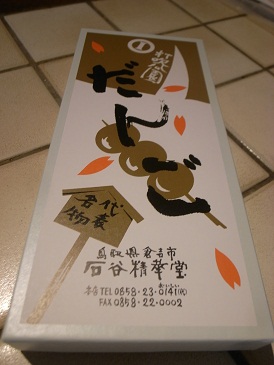 打吹公園
だんご
代表
名物
鳥取県倉吉市
石谷精華堂
本店 TEL 0858・23・0141(代)
おいしい
FAX 0858・22・0002